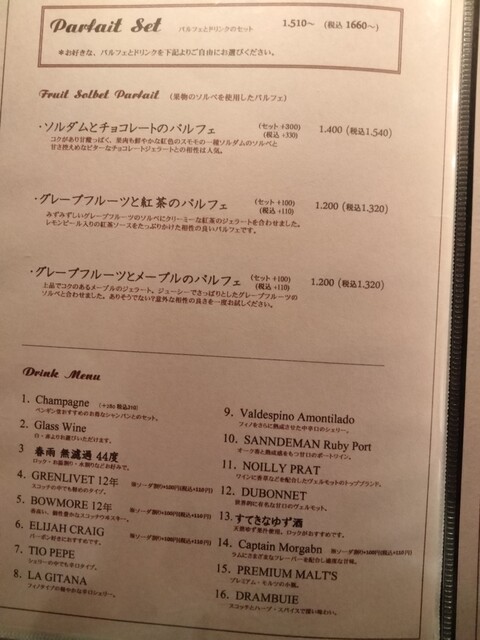 Parfait Set パルフェとドリンクのセット 1.510～ (税込 1660～)
＊お好きな、パルフェとドリンクを下記よりご自由にお選びください。
Fruit Solbet Parfait (果物のソルベを使用したパルフェ)
・ソルダムとチョコレートのパルフェ (セット +300) (税込 +330) 1.400 (税込1,540)
コクがあり甘酸っぱく、果肉も鮮やかな紅色のスモモの一種ソルダムのソルベと
甘さ控えめなビターなチョコレートジェラートとの相性は人気。
・グレープフルーツと紅茶のパルフェ (セット +100) (税込 +110) 1.200 (税込1,320)
みずみずしいグレープフルーツのソルベにクリーミーな紅茶のジェラートを合わせました。
レモンピール入りの紅茶ソースをたっぷりかけた相性の良いパルフェです。
・グレープフルーツとメープルのパルフェ (セット +100) (税込 +110) 1.200 (税込1,320)
上品でコクのあるメープルのジェラート、ジューシーでさっぱりとしたグレープフルーツの
ソルベと合わせました。ありそうでない?意外な相性の良さを一度お試しください。
Drink Menu
1. Champagne
ペンギン堂おすすめのお得なシャンパンとのセット。
2. Glass Wine
白・赤よりお選びいただけます。
3 春雨 無濾過 44度
ロック・お湯割り・水割りなどお好みで。
4. GRENLIVET 12年 ※ソーダ割り+100円(税込+110円)
スコッチの中でも軽めのタイプ。
5. BOWMORE 12年 ※ソーダ割り+100円(税込+110円)
6. ELIJAH CRAIG ※ソーダ割り+100円(税込+110円)
バーボン好きにおすすめです。
7. TIO PEPE
シェリーの中でも辛口タイプ。
8. LA GITANA
フィノタイプの軽やかな辛口シェリー。
9. Valdespino Amontilado
フィノをさらに熟成させた中辛口のシェリー。
10. SANNDEMAN Ruby Port
オーク樽と熟成感をもつ甘口のポートワイン。
11. NOILLY PRAT
ワインに薬草などを配合したヴェルモットのトップブランド。
12. DUBONNET
世界的に有名な甘口のヴェルモット。
13. すてきなゆず酒 ※ソーダ割り+100円(税込+110円)
天然ゆず果汁使用、ロックがおすすめです。
14. Captain Morgabn ※ソーダ割り+100円(税込+110円)
ラムにさまざまなフレーバーを配合し適度な甘味。
15. PREMIUM MALT'S
プレミアム・モルツの小瓶。
16. DRAMBUIE
スコッチとハーブ・スパイスで強い味わい。